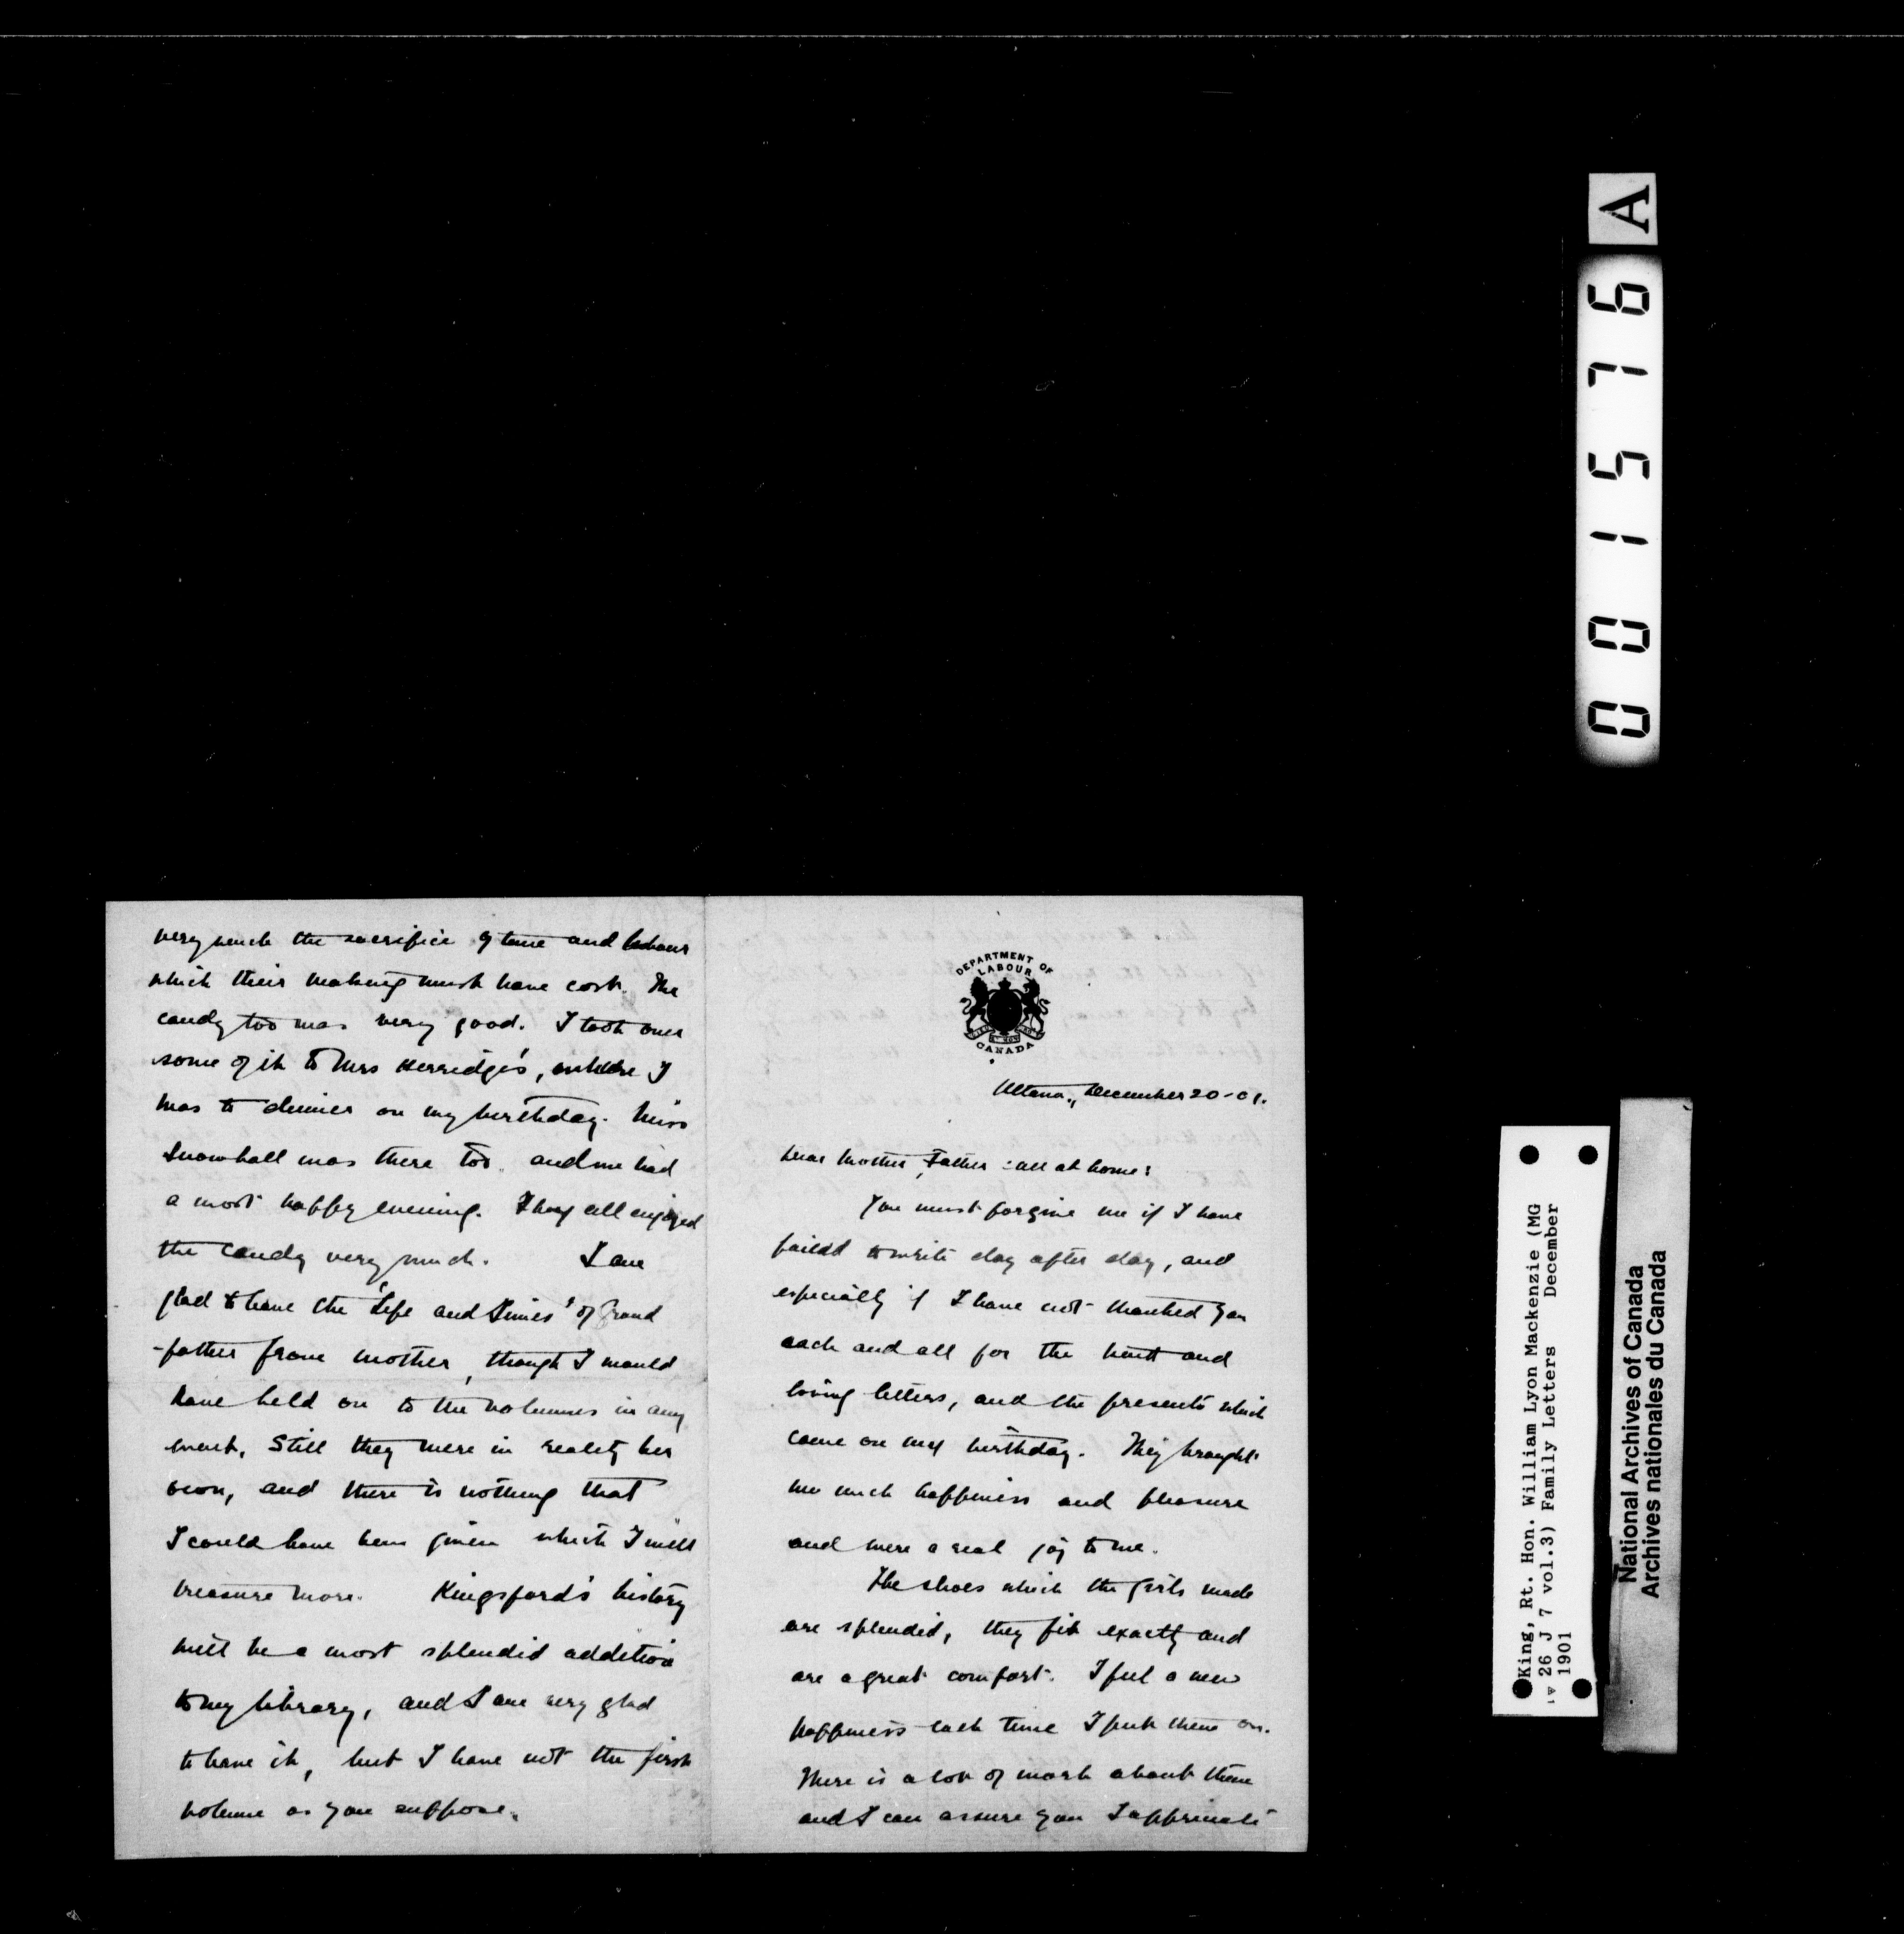 DEPARTMENT OF
LABOUR
CANADA
Ottawa, December 20-01.
Dear Mother, Father & all at home:
You must forgive me if I have
failed to write day after day, and
especially if I have not thanked you
each and all for the kind and
loving letters, and the presents which
came on my birthday. They brought
me much happiness and pleasure
and were a real joy to me.
The shoes which the girls made
are splendid, they fit exactly and
are a great comfort. I feel a new
happiness each time I put them on.
There is a lot of work about them
and I can assure you I appreciate
very much the sacrifice of time and labour
which their making must have cost. The
candy too was very good. I took over
some of it to Mrs Herridge's, where I
was to dinner on my birthday. Miss
Snowball was there too and we had
a most happy evening. They all enjoyed
the candy very much. I am
glad to have the 'Life and Times' of Grand
-father from mother, though I would
have held on to the volumes in any
event. Still they were in reality her
own, and there is nothing that
I could have been given which I will
treasure more. Kingsford's history
will be a most splendid addition
to my library, and I am very glad
to have it, but I have not the first
volume as you suppose.
A
001576
King, Rt. Hon. William Lyon Mackenzie (MG
26 J 7 vol.3) Family Letters December
1901
National Archives of Canada
Archives nationales du Canada